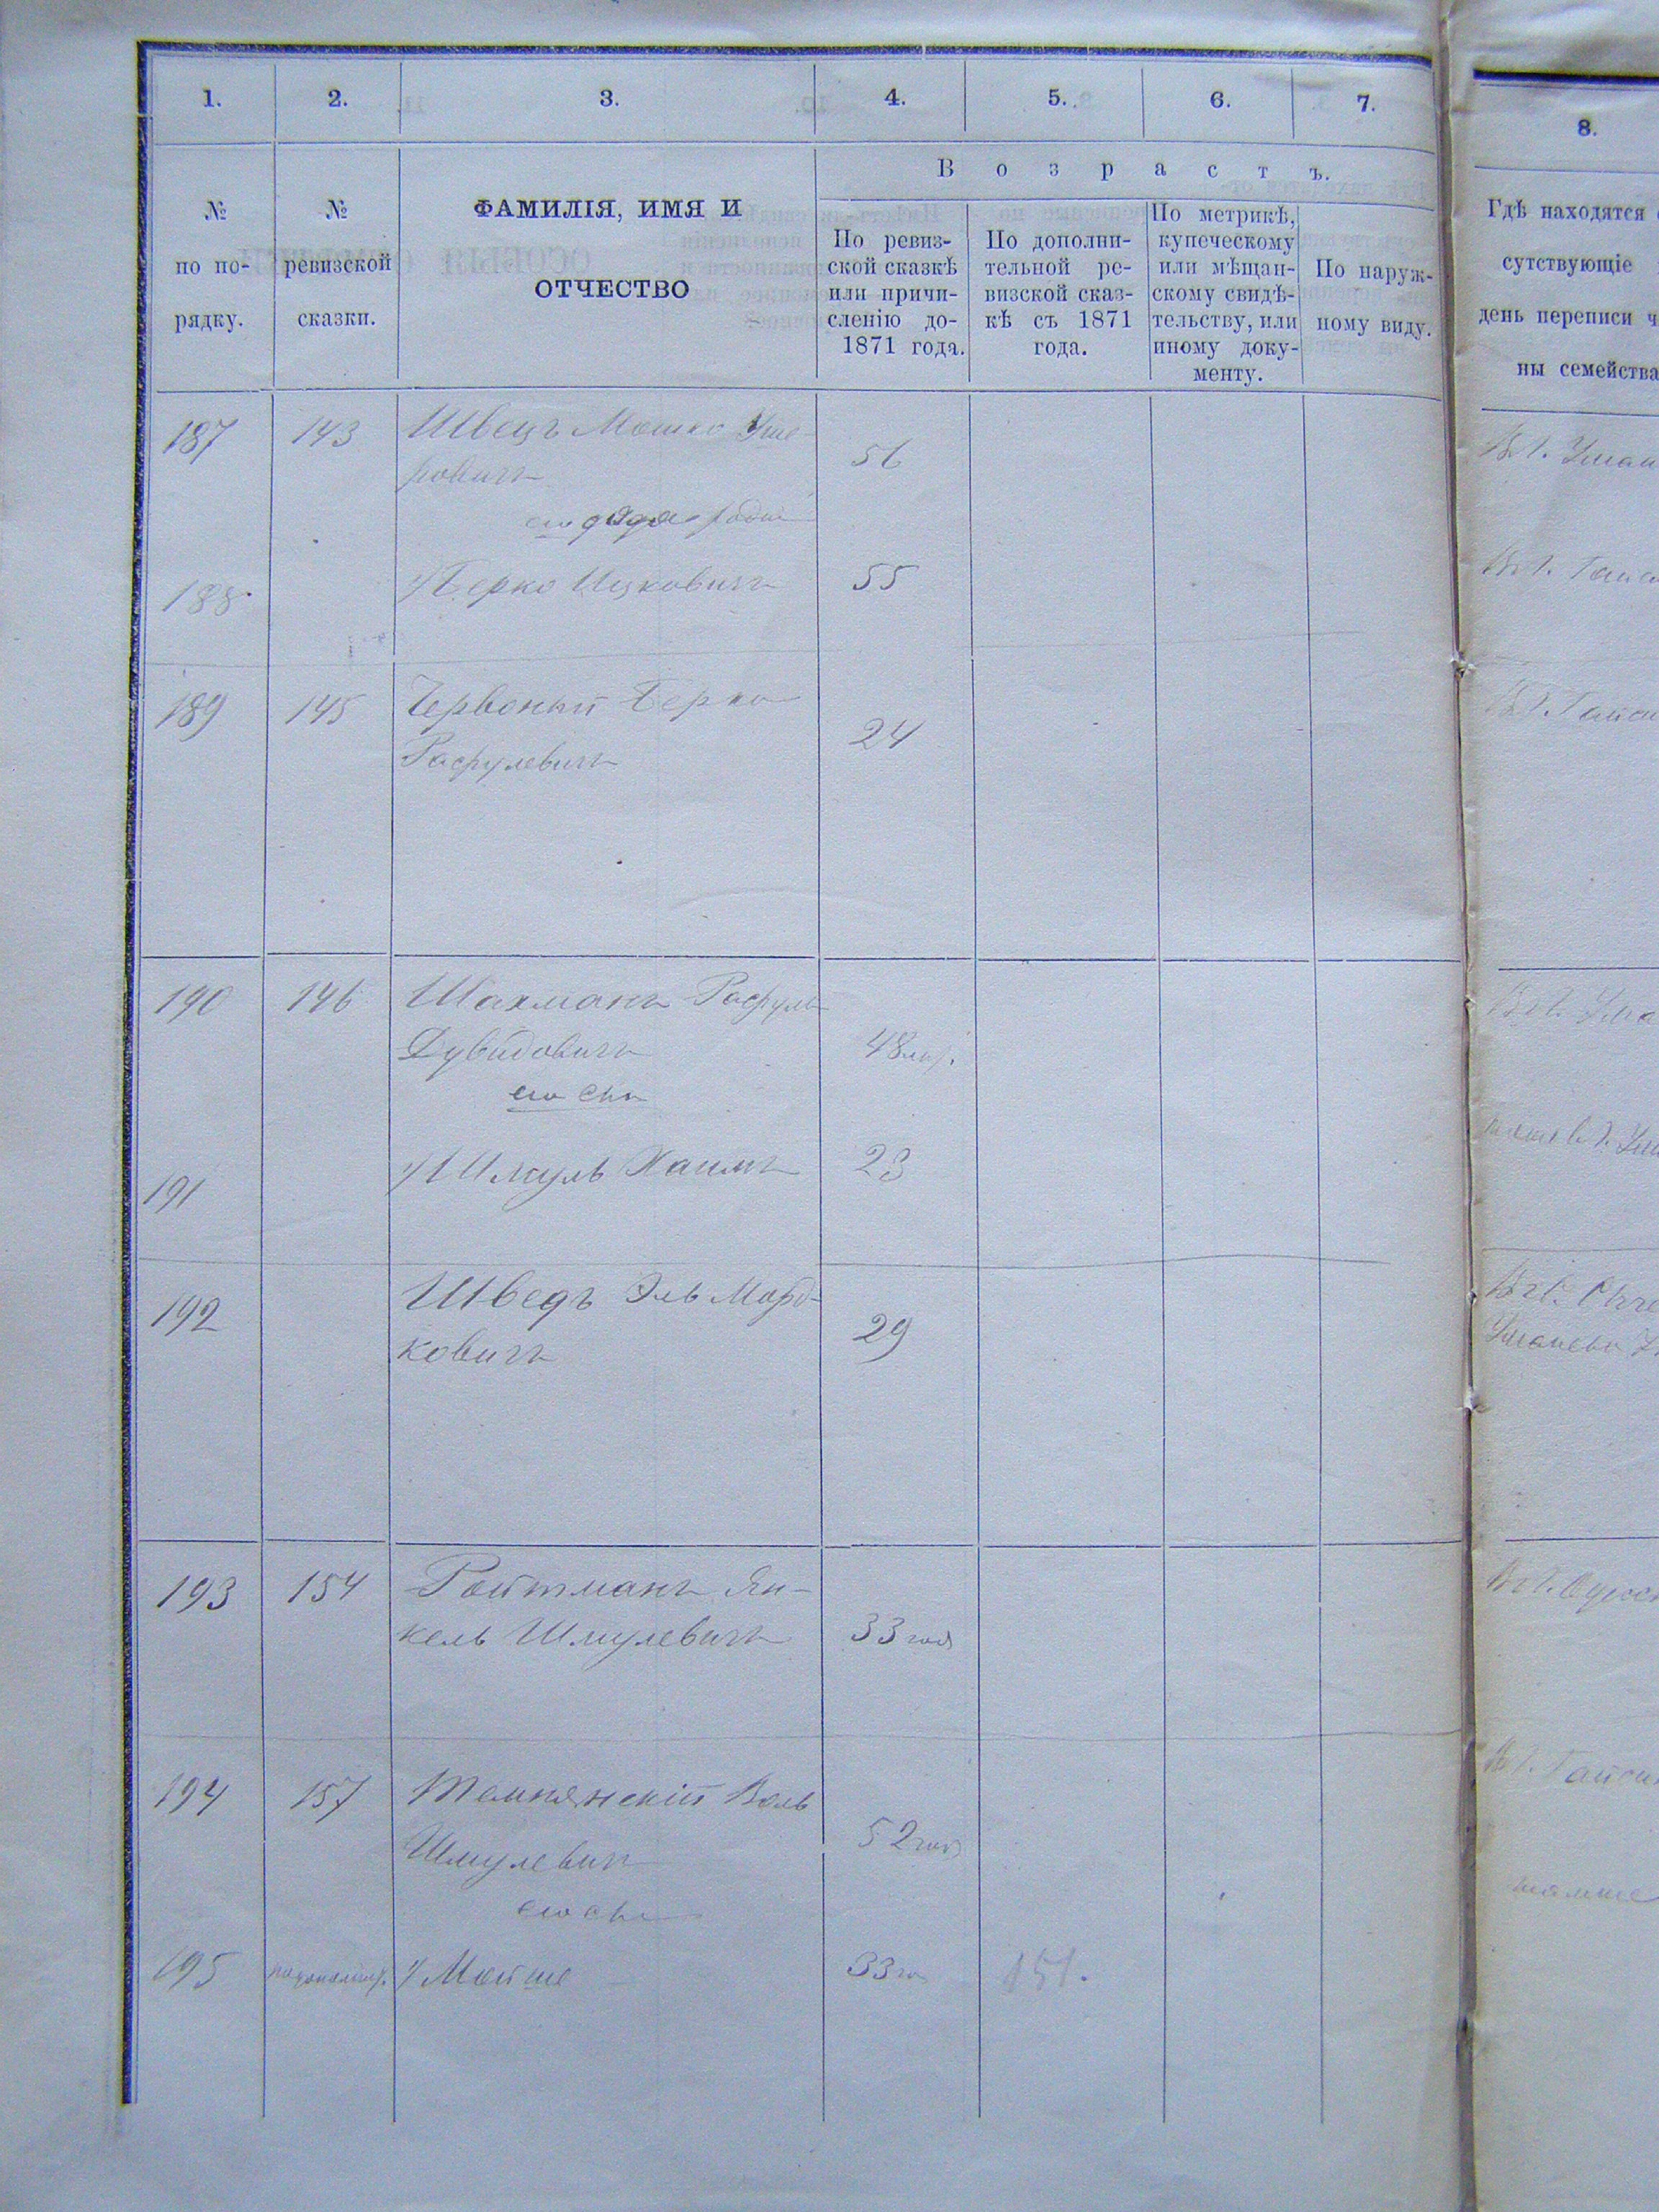 1. 2. 3. 4. 5. 6. 7. 8.
№ по порядку.
№ ревизской сказки.
ФАМИЛІЯ, ИМЯ И
ОТЧЕСТВО
Возрастъ.
По ревиз-
ской сказкѣ
или причи-
сленію до-
1871 года.
По дополни-
тельной ре-
визской сказ-
кѣ съ 1871
года.
По метрикѣ,
купеческому
или мѣщан-
скому свидѣ-
тельству, или
иному доку-
менту.
По наруж-
ному виду.
Гдѣ находятся
сутствующіе
день переписи ч
ны семейства
187 143 Швецъ Мошко Уше-
ровичъ 56
его дядя
188 1/ Берко Ицковичъ 55
189 145 Червоный Берко
Расрулевичъ 24
190 146 Шахманъ Расруль
Дувидовичъ 48
его снъ
191 1/ Шмуль Хаимъ 23
192 Шведъ Эль Морд-
ковичъ 29
193 154 Ройтманъ Ян-
кель Шмулевичъ 33 год
194 157 Темнянскій Воль
Шмулевичъ 52 год
его снъ
195 1/ Мойше 33 151.